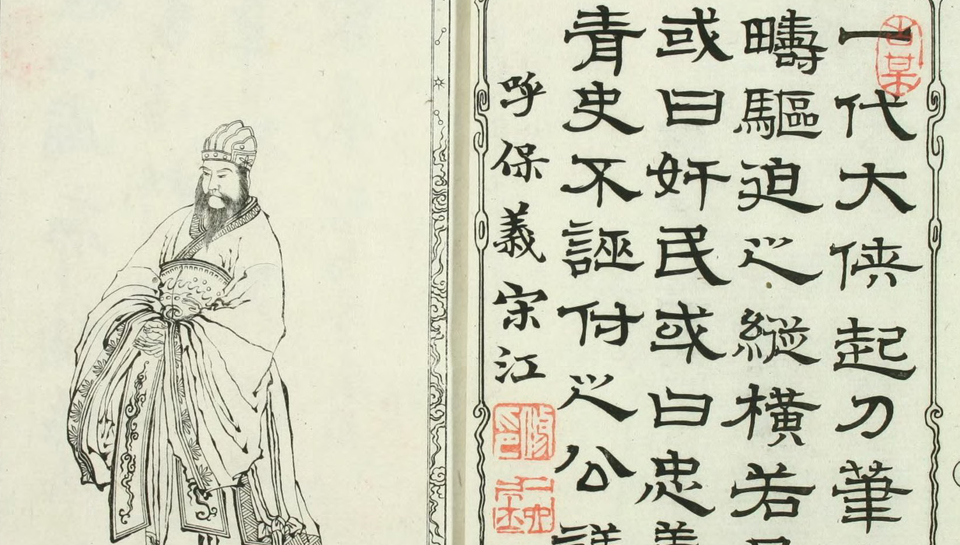 一代大俠起刀筆
疇驅迫之縱橫若
或曰奸民或曰忠義
青史不誣付之公
呼保義宋江